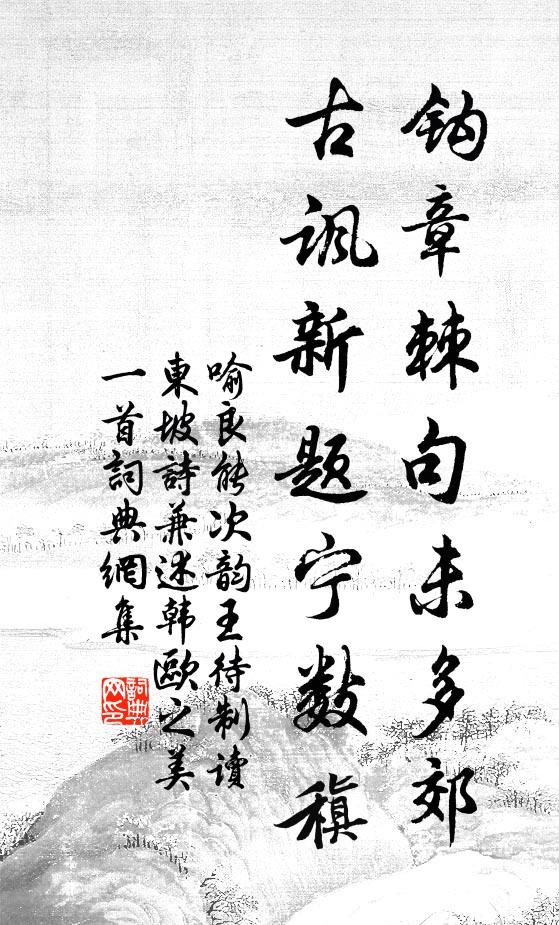 钩章棘句未多郊
古讽新题宁数稹
喻良能次韵王待制读
東坡詩兼述韩歐之美
一首詞典網集
詞典網印